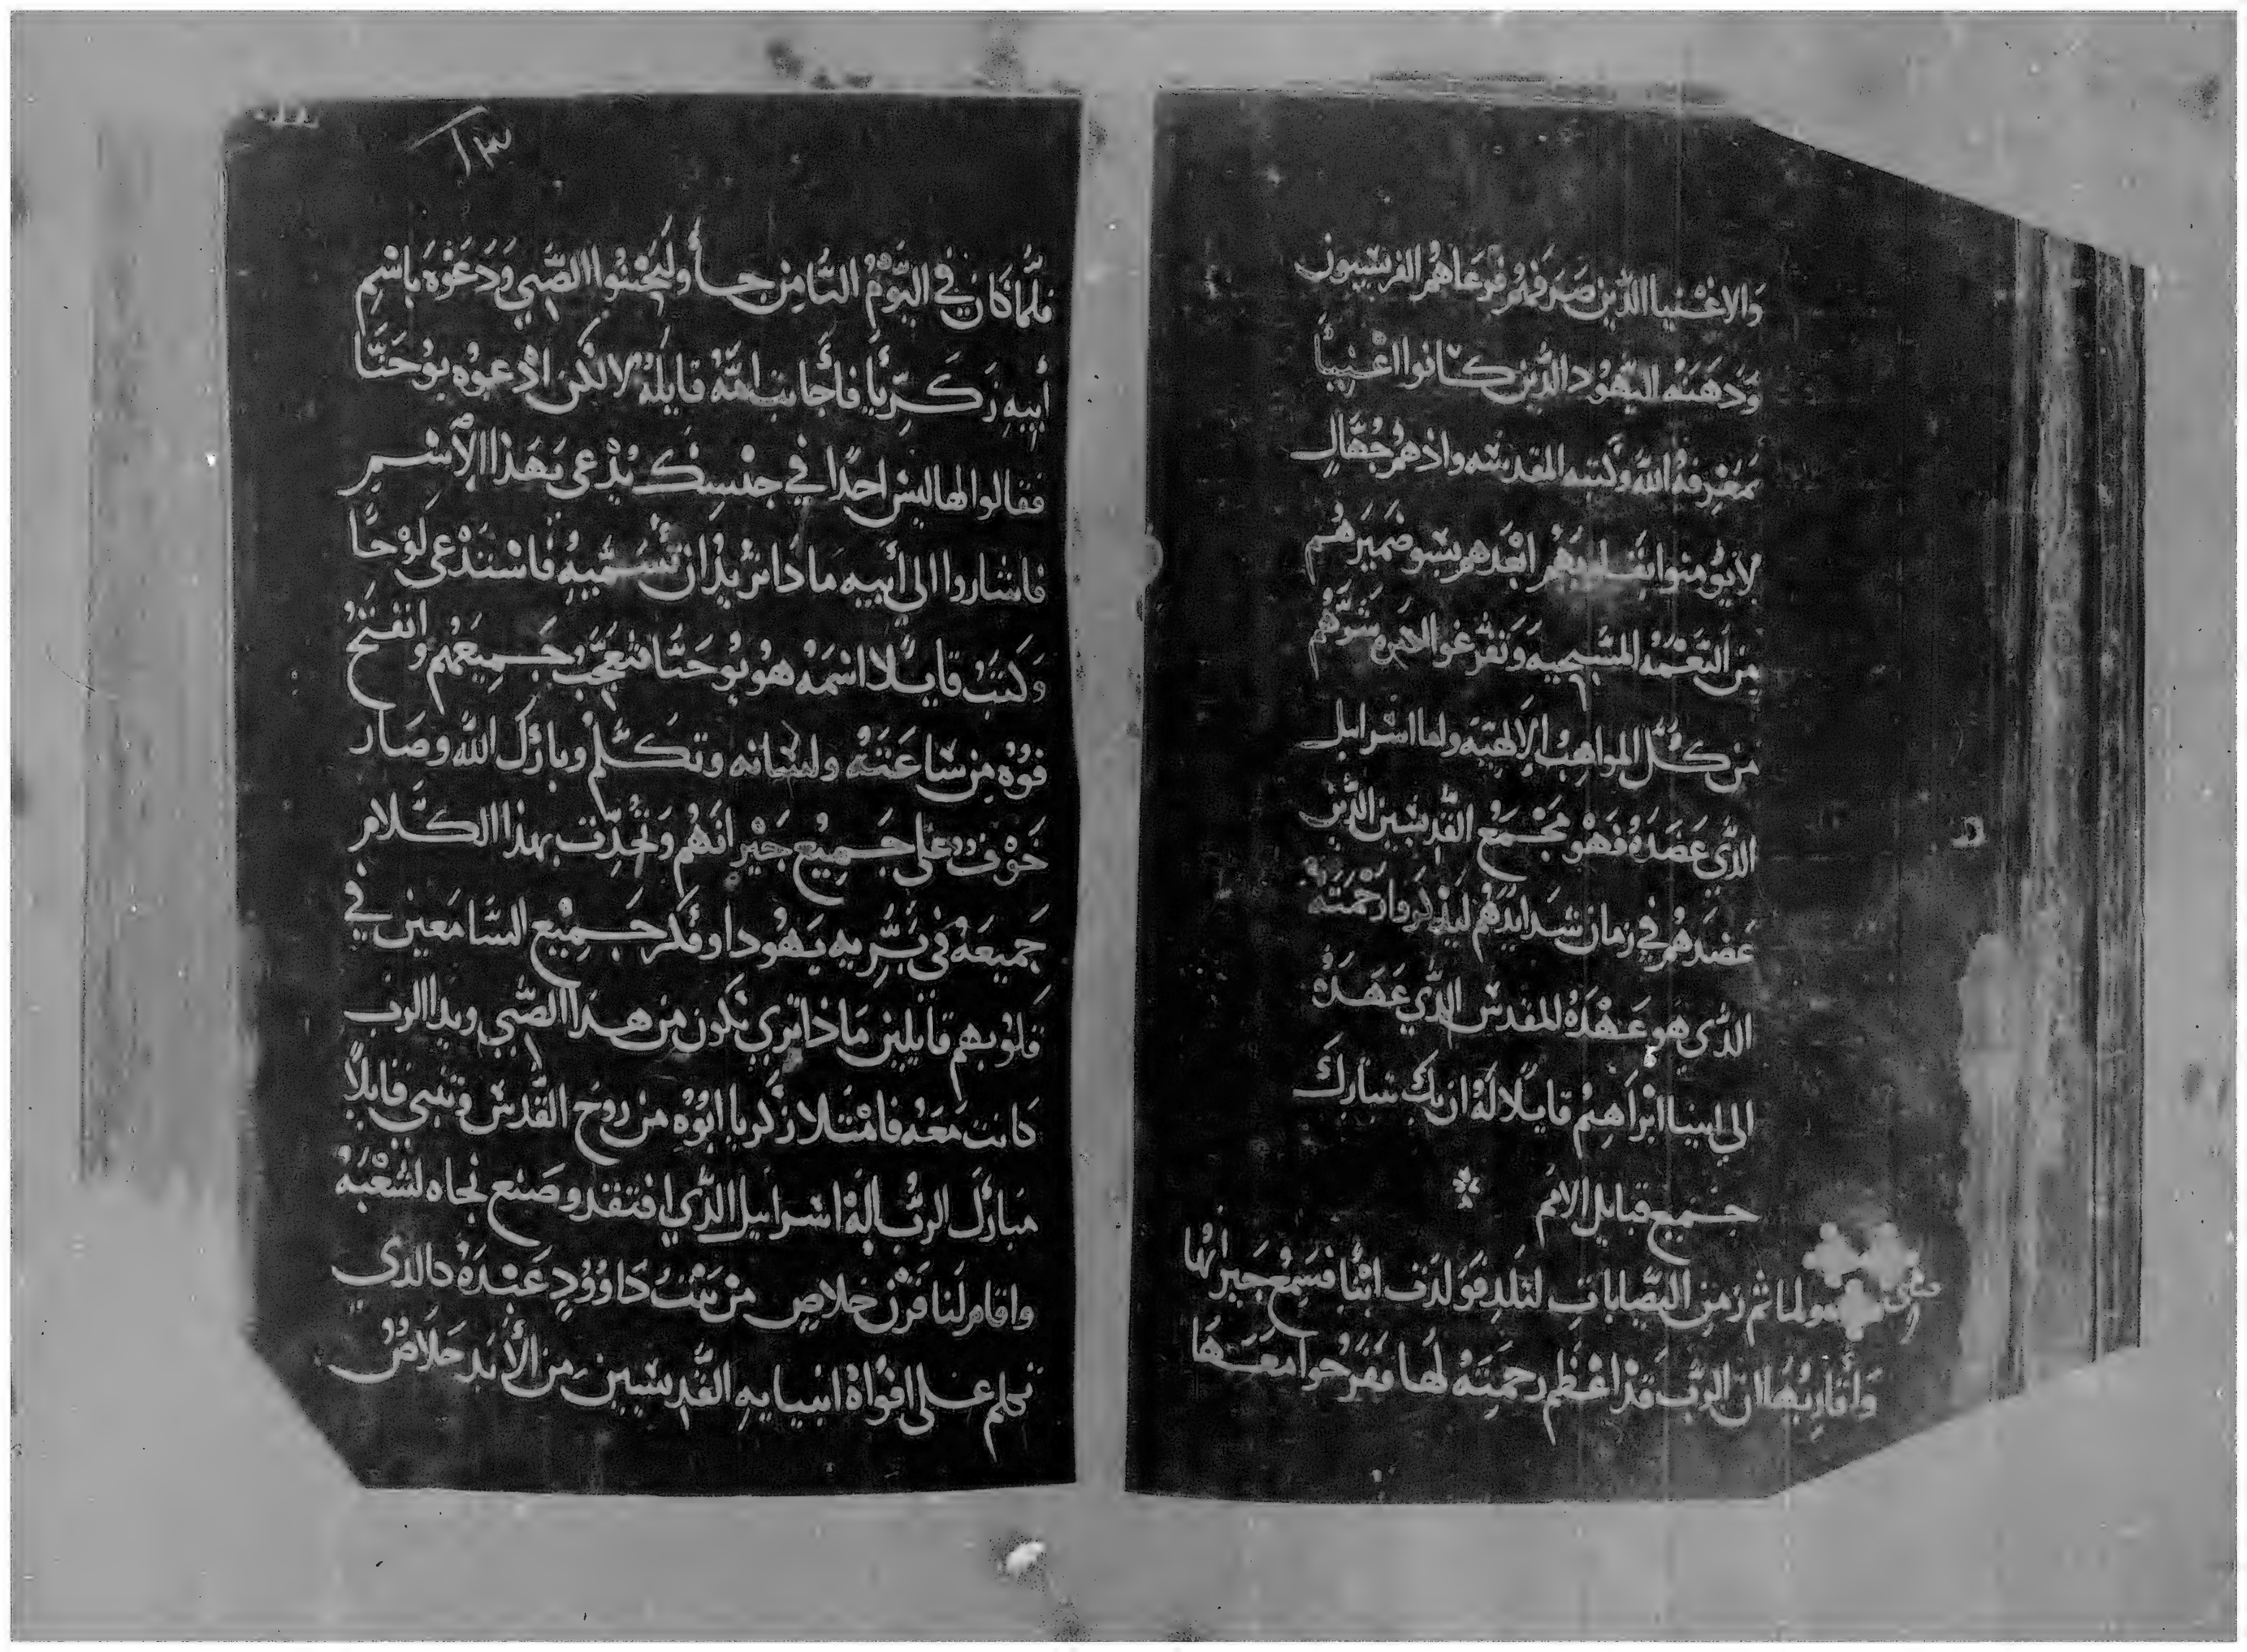 والاغنيا الذين صرفهم فرغاهم الفريسيون
وَدَهَمَنه اليهود الذين كانوا اغنيياً
بمعرفة الله وكتبه المقدسه واذهم جُهَّال
لا يومنوا بقلوبهم ابعدهم بسو ضميرهم
مِن النعمه المسيحيه وتفرغوا
من كُلّ المواهب الالهيّه ولما اسرايل
الذي عَضَدَهُ فهو مجمع القديسين الذين
عضدهم في زمان شدايدهم ليذكروا رحمته
الذي هو عهدَهُ المقدس الذي عَهَدَهُ
الي ابينا ابراهيم قايلا لهُ ان بك تبارك
جميع قبايل الامم
ثم زمن اليصابات لتلد فولدت ابنًا فسمع جيرانها
وأقاربُها ان الربّ قد اعظم رحمته لها ففرحوا معها
١٣
فلمّا كان في اليوم الثامن جأ وليختنوا الصّبي ودعوه باسم
أبيه زكريا فأجابت امّهُ قايلهُ لا لكن ادعوه يوحَنّا
فقالوا لها ليس احدًا في جنسك يُدعى بهذا الأسم
فاشاروا الي أبيه ماذا تريد ان تسميه فاستدعى لوحًا
وكتب قايلا اسمه هو يوحنّا فتعجّب جميعهم وانفتح
فوه من ساعته ولسانه وتكلّم وبارك الله وصار
خوف على جميع جيرانهم وتحدّث بهذا الكلام
جميعه في بَرّيه يهودا وفكر جميع السّامعين في
قلوبهم قايلين ماذا تري يكون من هذا الصّبي ويد الرب
كانت معه فامتلا زكريا ابوُه من روح القدس وتنبي قايلاً
مبارك الربّ اله اسرايل الذي افتقد وصنع نجاه لشعبه
واقام لنا قرن خلاص من بيت داوود عبدهُ كالذي
تكلم على افواه انبيايه القديسين من الأبد خلاص